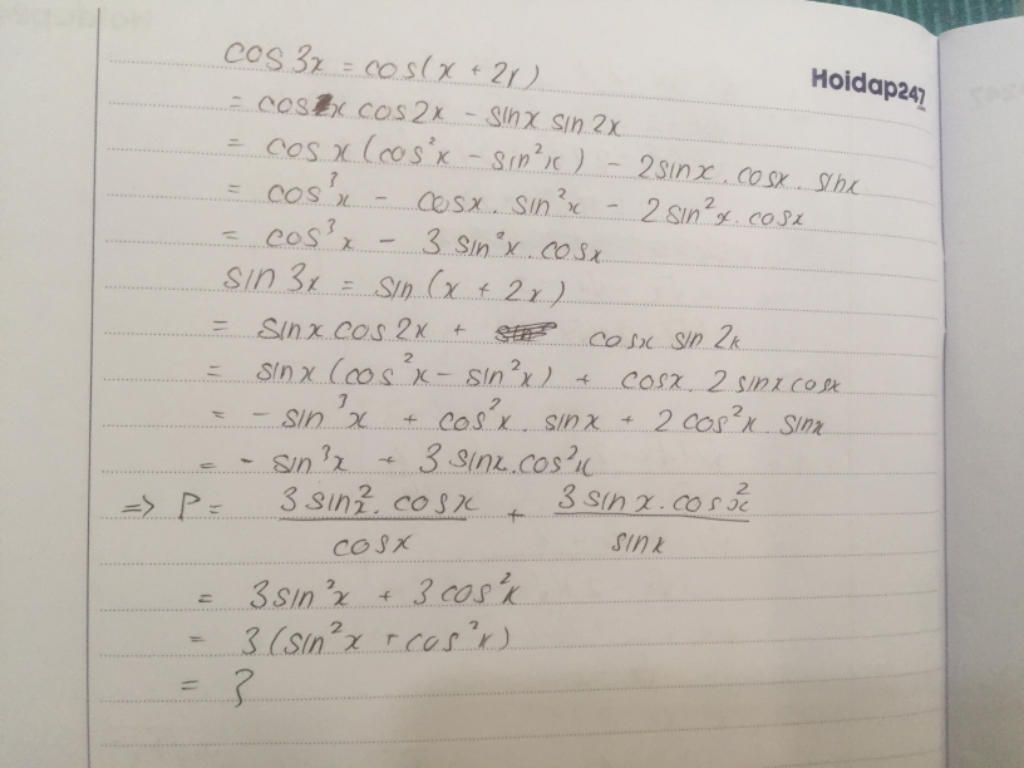 cos 3x = cos(x + 2x)
Hoidap247
= cosx cos2x - sinx sin 2x
= cos x (cos²x - sin²x) - 2sinx . cosx . sinx
= cos³x - cosx . sin²x - 2 sin²x . cosx
= cos³x - 3 sin²x . cosx
sin 3x = sin (x + 2x)
= sinx cos 2x + cosx sin 2x
= sinx (cos²x - sin²x) + cosx . 2 sinx cosx
= - sin³x + cos²x . sinx + 2 cos²x . sinx
= - sin³x + 3 sinx . cos²x
=> P = 3 sin²x . cosx / cosx + 3 sin x . cos²x / sinx
= 3sin²x + 3 cos²x
= 3 (sin²x + cos²x)
= 3